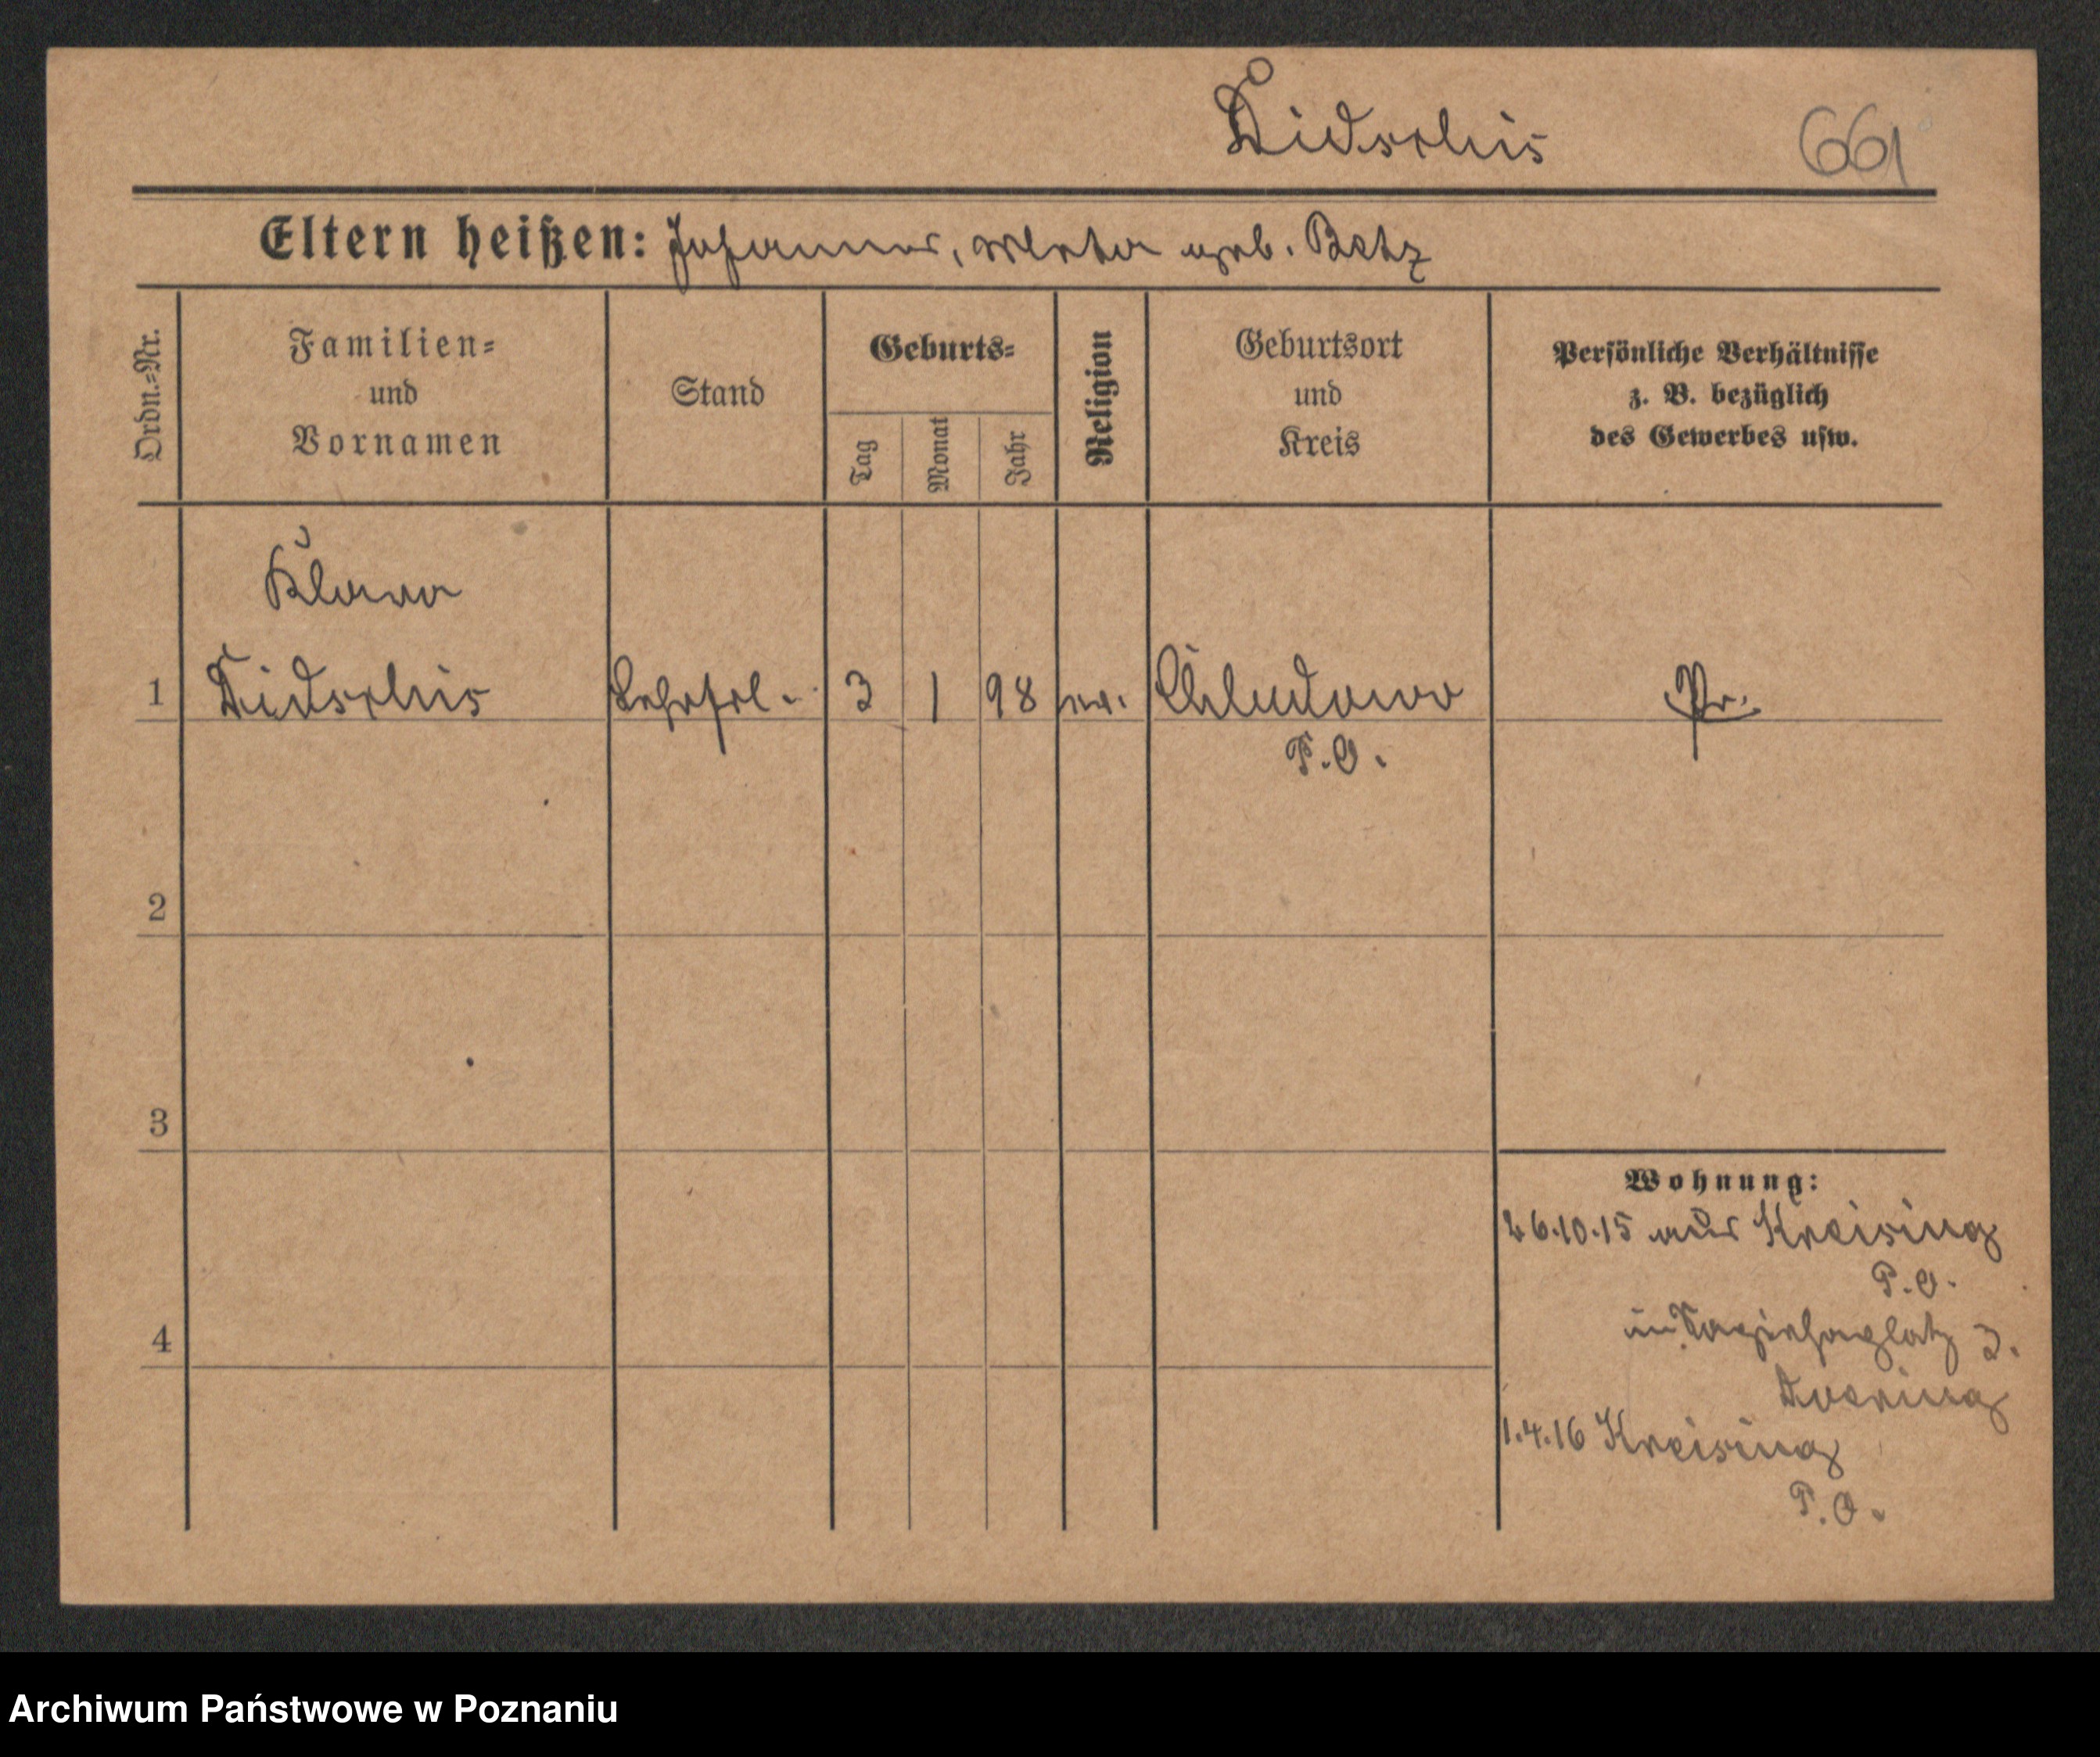 661
Eltern heißen: Johannes, Marta geb. Betz
Ordn.=Nr.
Familien=
und
Vornamen
Stand
Geburts=
Tag
Monat
Jahr
Religion
Geburtsort
und
Kreis
Persönliche Verhältnisse
z. B. bezüglich
des Gewerbes usw.
Klara
1 Lehrfrl. 3 1 98 ev. Chludowo Pr.
P.O.
2
3
4
Wohnung:
26.10.15 aus Kreising
P.O.
3.
1.4.16 Kreising
P.O.
Archiwum Państwowe w Poznaniu